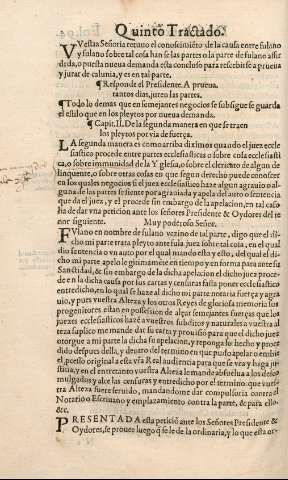 Quinto Tractado.
Vuestas Señoria retuuo el conoscimiẽto de la causa entre fulano
y fulano sobre tal cosa han se las partes o la parte de fulano assẽ
drda, o puesta nueua demanda esta concluso para rescebirse a prueua
y jurar de calunia, y es en tal parte.
¶ Respondẽ el Presidente. A prueua.
tantos dias, juren las partes.
¶ Todo lo demas que en semejantes negocios se subsigue se guarda
el estilo que en los pleytos por nueua demanda.
¶ Capit. II. De la segunda manera en que se traen
los pleytos por via de fuerça.
LA segunda manera es como arriba diximos quando el juez eccle
siastico procede entre partes ecclesiasticas o sobre cosa ecclesiasti
ca, o sobre immunidad de la Yglesia, o sobre el delicto de algun de
linquente, o sobre otras cosas en que segun derecho puede conoscer
en los quales negocios si el juez ecclesiastico haze algun agrauio o al-
guna de las partes se siente por agrauiada y apela del auto o sentencia
que da el juez, y el procede sin embargo de la apelacion, en tal caso
ha de dar vna peticion ante los señores Presidente & Oydores del te
nor siguiente.
Muy poderoso Señor.
FVlano en nombre de fulano vezino de tal parte, digo que el di-
cho mi parte trata pleyto ante fula. juez sobre tal cosa, en el qual
dio sentencia o vn auto por el qual mando esto y esto, del qual el di-
cho mi parte apelo legitimamente en tiempo y en forma para ante su
Sanctidad, & sin embargo de la dicha apelacion el dicho juez proce-
de en la dicha causa por sus cartas y censuras hasta poner ecclesiastico
entredicho, en lo qual se haze al dicho mi parte notoria fuerça y agra-
uio, y pues vuestra Alteza y los otros Reyes de gloriosa memoria sus
progenitores estan en possession de alçar semejantes fuerças que los
juezes ecclesiasticos hazẽ a vuestros subditos y naturales a vuestra al
teza suplico me mande dar su carta y prouision para que el dicho juez
otorgue a mi parte la dicha su apelacion, y reponga lo hecho y proce
dido despues della, y dentro del termino en que pudo apelar o embie
el processo original a esta vr̃a Real audiencia para que se vea y haga ju-
sticia, y en el entretanto vuestra Alteza le mande absuelua a los desco
mulgados y alce las censuras y entredicho por el termino que vuestra
tra Alteza fuere seruido, mandandome dar compulsoria contra el
Notario o Escriuano y emplazamiento contra la parte, & para ello,
&c.
PRESENTADA esta peticiõ ante los Señores Presidente &
Oydores, se prouee luego q̃ se le de la ordinaria, y lo que esta or-